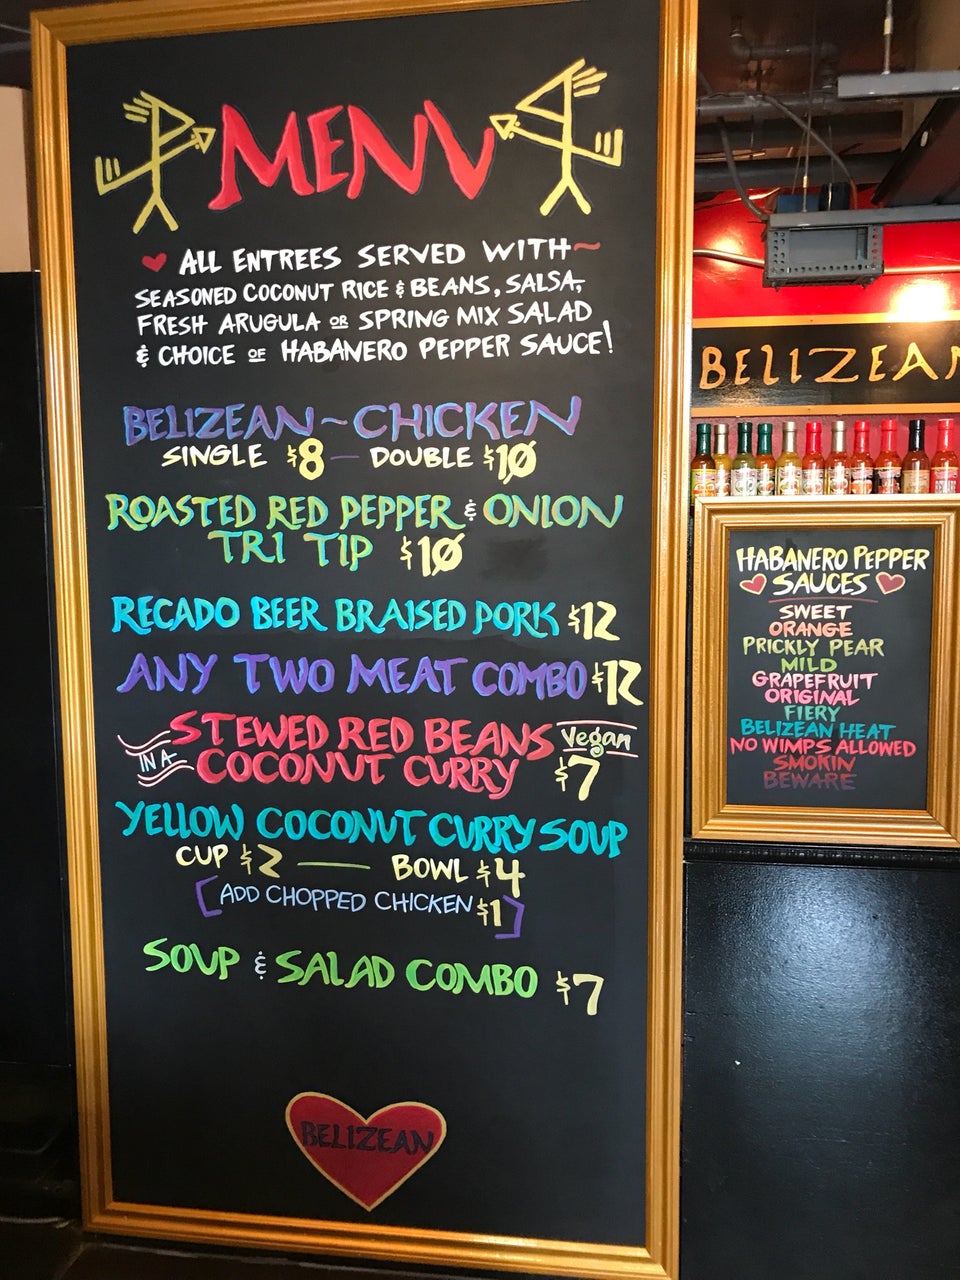 MENU
ALL ENTREES SERVED WITH~
SEASONED COCONUT RICE & BEANS, SALSA,
FRESH ARUGULA OR SPRING MIX SALAD
& CHOICE OF HABANERO PEPPER SAUCE!
BELIZEAN~CHICKEN
SINGLE $8 — DOUBLE $10
ROASTED RED PEPPER & ONION
TRI TIP $10
RECADO BEER BRAISED PORK $12
ANY TWO MEAT COMBO $12
STEWED RED BEANS Vegan
IN A COCONUT CURRY $7
YELLOW COCONUT CURRY SOUP
CUP $2 — BOWL $4
[ADD CHOPPED CHICKEN $1]
SOUP & SALAD COMBO $7
BELIZEAN
BELIZEAN
HABANERO PEPPER
SAUCES
SWEET
ORANGE
PRICKLY PEAR
MILD
GRAPEFRUIT
ORIGINAL
FIERY
BELIZEAN HEAT
NO WIMPS ALLOWED
SMOKIN
BEWARE